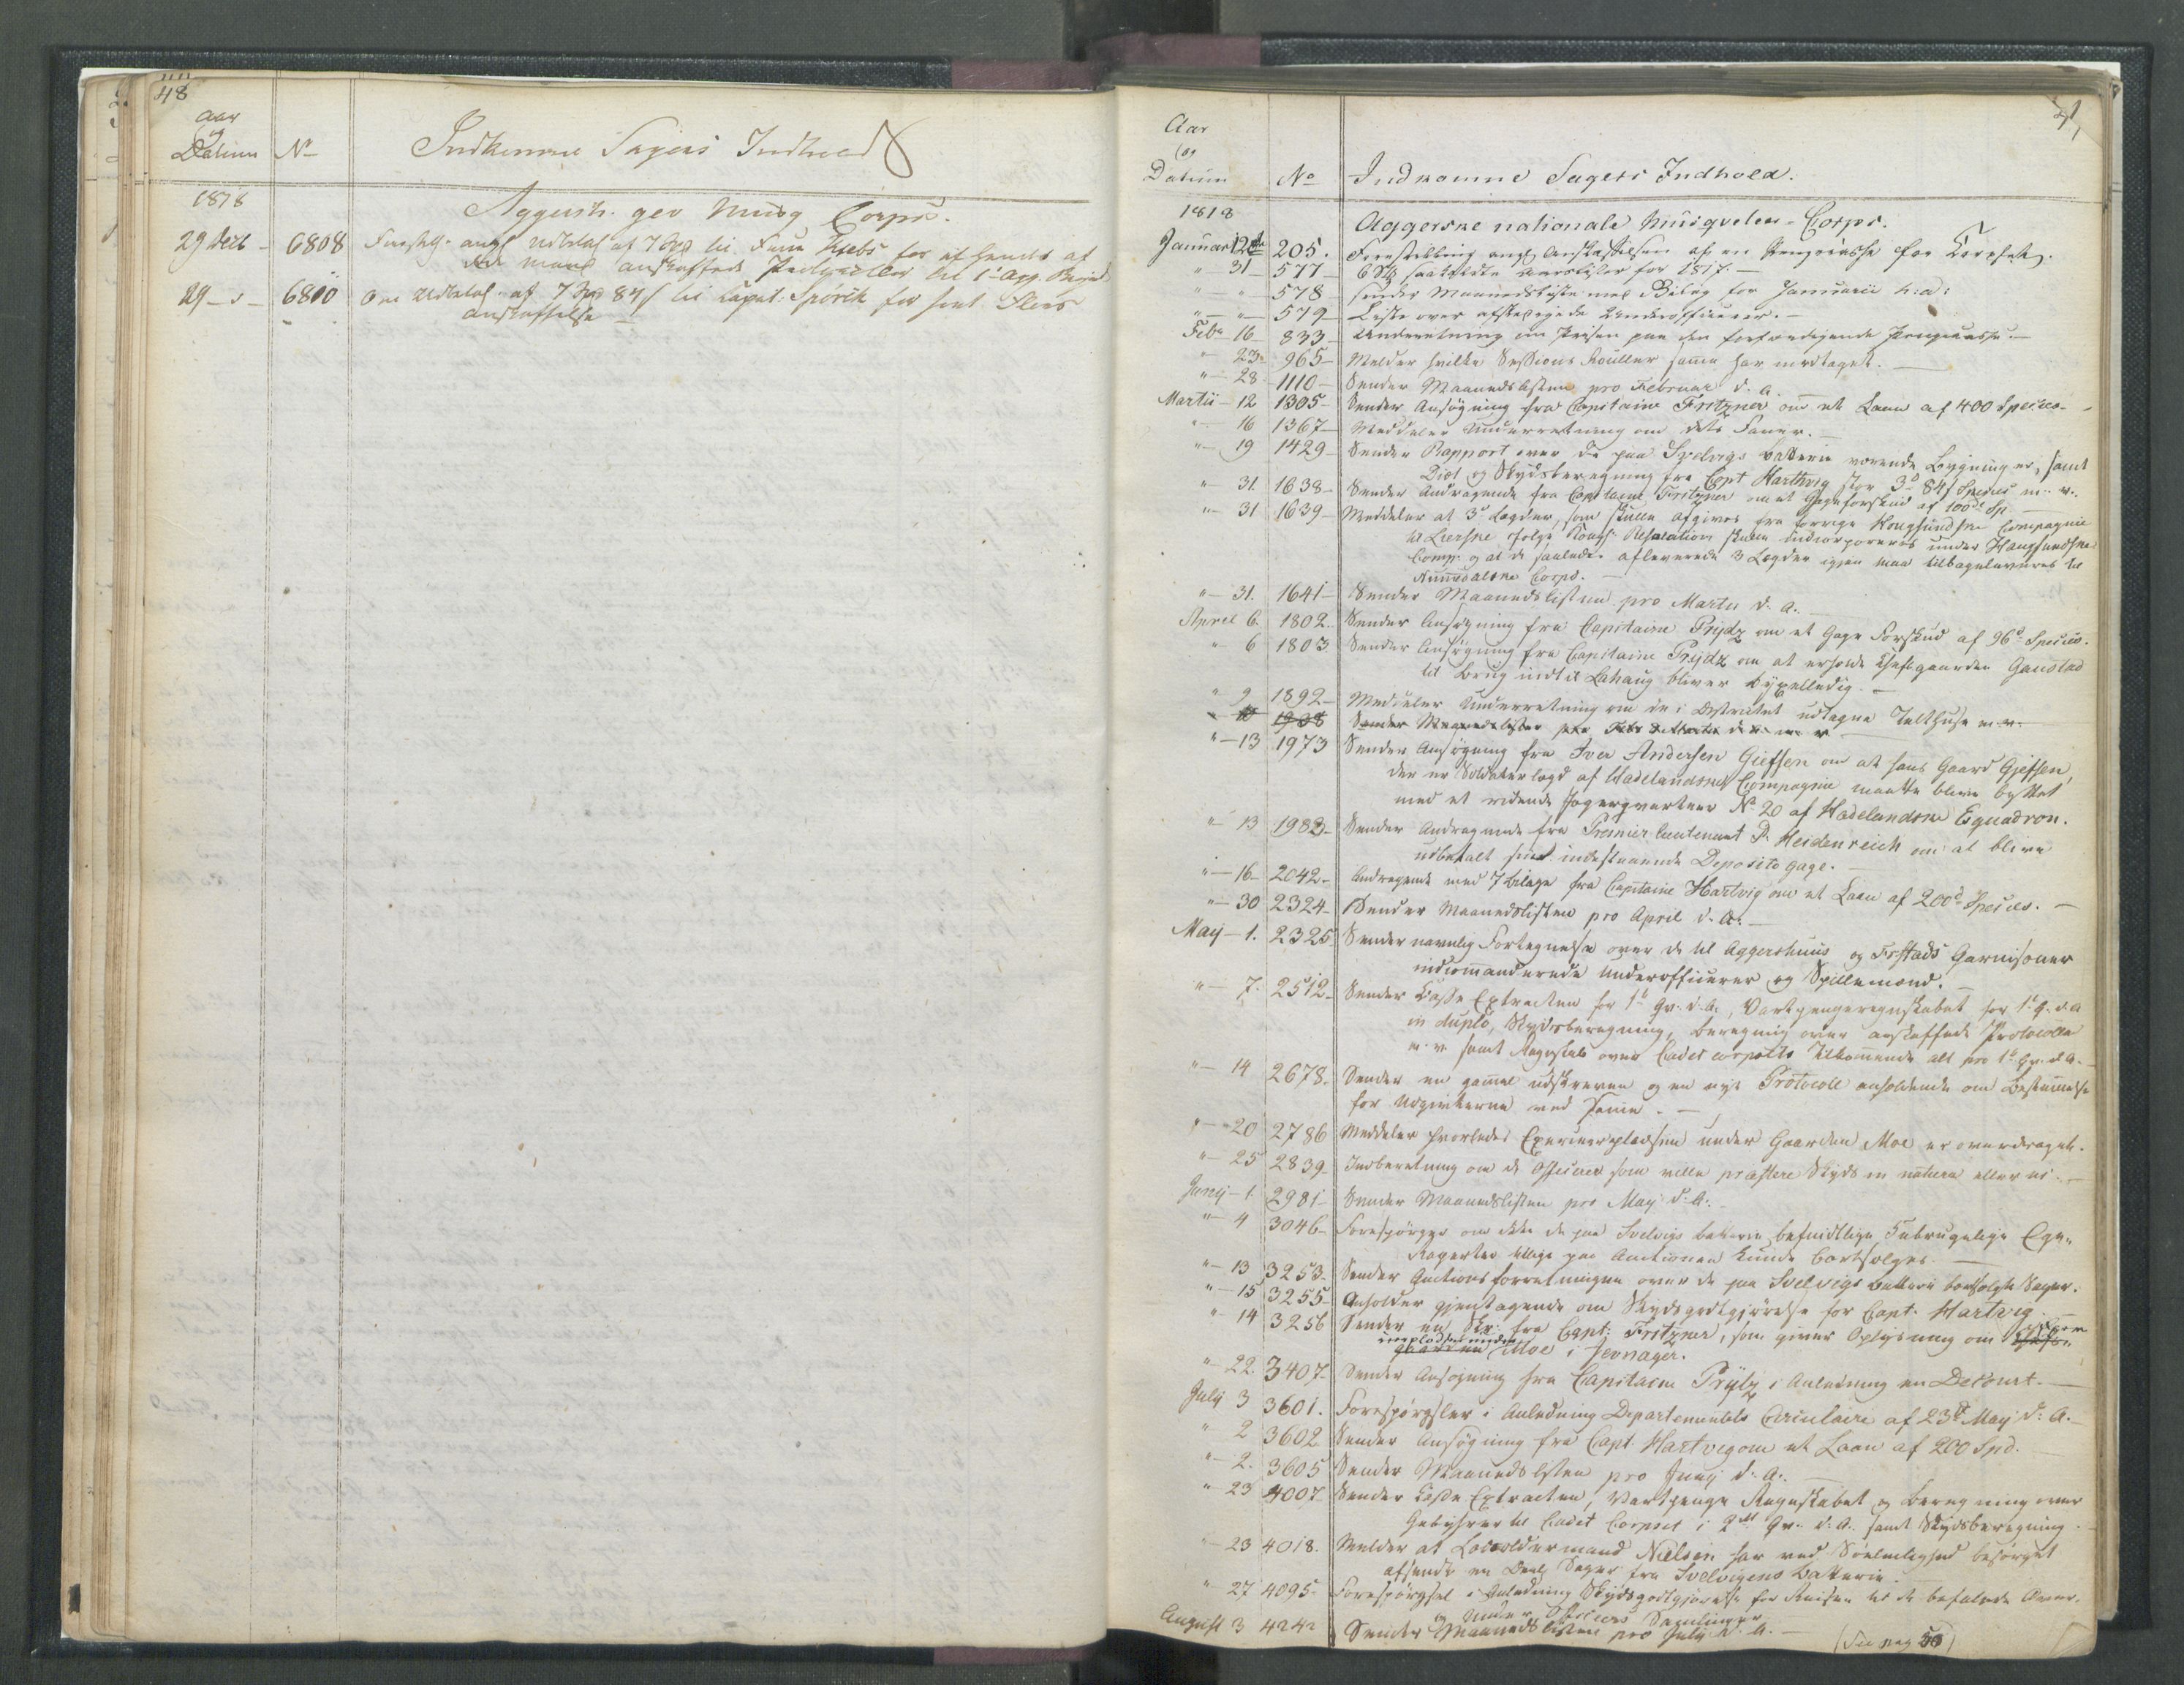 48
Aar
og
Datum No Indkomne Sagers Indhold
1818
Aggersh. gev Musq Corps.
29 Decb 6808 Forestilg. angl. Udbetal af 7 Spd til
det maal anskaffede til 1t Agg. Brigd
29 - s - 6810 Om Udbetal. af 7 Spd 84 s til Capit. Spörck for
anskaffelse
Aar
og
Datum No Indkomne Sagers Indhold.
1818
Aggerske nationale Musqveteer-Corps.
Januari 12te 205. Forestilling angl. Anskaffelsen af en Pengecasse for Corpset.
" 31 577 6 Stk for 1817.
" " 578 Sender Maanedsliste med Bilag for Januarii h: a:
" " 579 Liste over afskedigede Underofficierer.
Feb. 16 833 Underretning om Prisen paa den forfærdigende Pengecasse.
" 23. 965 Melder hvilke Sessions Rouller samme har modtaget.
" 28 1110 Sender Maanedslisten pro Februar d. A.
Martii 12 1305 Sender Ansøgning fra Capitaine Fritzner om et Laan af 400 Species.
" 16 1367 Meddeler Underretning om dets Faner.
" 19 1429 Sender Rapport over de paa Svelvigs Batterie værende Bygninger, samt
Diæt og Skydsberegning fra Capt Harthvig stor 3d 84 s Species m. v.
" 31. 1638 Sender Andragende fra Capitaine Fritzner om et Gageforskud af 100de Sp
" 31 1639 Meddeler at 3de Lægder, som skulle afgives fra forrige Hougsundske Compagnie
til Lierske ifølge Kongl. Resolution skulle indcorporeres under Hougsundske
Comp. og at de saaledes afleverede 3 Lægder igjen maa tilbageleveres til
Nummedalske Corps.
" 31. 1641 Sender Maanedslisten pro Martii d. A.
April 6. 1802. Sender Ansøgning fra Capitaine Prydz om et Gage Forskud af 96d Species.
" 6 1803. Sender Ansøgning fra Capitaine Prydz om at erholde Chefsgaarden Gaustad
til Brug indtil Lahaug bliver
" 9 1892 Meddeler Underretning om de i Districtet udtagne Telthuse m. v.
" 10 1938 Sender Maanedslister pro Febr & Martii d. A. m. v
" 13 1973 Sender Ansøgning fra Iver Andersen Gieffen om at hans Gaard Gjeffen,
der er Soldaterlægd af Hadelandske Compagnie maatte blive byttet
med et ridende Jægerqvarteer No 20 af Hadelandske Esquadron.
" 13 1983 Sender Andragende fra Premierlieutenant P. Heidenreich om at blive
udbetalt sine indestaaende Deposito gage.
" 16 2042 Andragende med 7 Bilage fra Capitaine Hartvig om et Laan af 200d Species.
" 30 2324 Sender Maanedslisten pro April d. A.
Maij 1. 2325. Sender navnlig Fortegnelse over de til Aggershuus og Frstads Garnisoner
indcommanderede Underofficierer og Spillemænd.
" 7. 2512 Sender Casse Extracten for 1te Qv. d. A., Vartpengeregnskabet for 1te Q. d. A
in duplo, Skydsberegning, Beregning over anskaffede Protocoller
m. v samt Regnskab over Cadet corpsets tilkommende alt pro 1te Qv. d A.
" 14 2678. Sender en gammel udskreven og en nye Protocoll anholdende om Bestemmelse
for Udgivterne ved samme.
" 20 2786 Meddeler hvorledes Exerceerpladsen under Gaarden Moe er overdraget.
" 25 2839. Indberetning om de Officierer som ville præstere Skyds in natura eller ei.
Junij 1. 2981 Sender Maanedslisten pro Maij d. A.
" 4 3046 Forespørger om ikke de paa Svelvigs Batterie befindtlige Ubrugelige
Rapperter tillige paa Auctionen kunde bortsælges.
" 13 3253. Sender Auctions forretningen over de paa Svelvigs Batterie bortsolgte Sager.
" 15 3255 Anholder gjentagende om Skydsgodtgjørelse for Capt. Hartvig.
" 14 3256 Sender en Skr. fra Capt. Fritzner, som giver Oplysning om Exer
cerpladsen under
gaarden Moe i Jevnager.
" 22. 3407 Sender Ansøgning fra Capitaine Prydz i Anledning en Decourt.
July 3 3601. Forespørgsler i Anledning Departementets Circulaire af 23de Maij d: A.
" 2 3602 Sender Ansøgning fra Capt. Hartvig om et Laan af 200 Spd.
" 2. 3605 Sender Maanedslisten pro Junij d. A.
" 23 4007 Sender Casse Extracten, Vartpenge Regnskabet og Beregning over
Gebyhrer til Cadet Corpset i 2det Qv. d. A. samt Skydsberegning.
" 23 4018. Melder at Lodsoldermand Nielsen har ved Søeleilighed besørget
afsendt en Deel Sager fra Svelvigens Batterie.
" 27 4095 Forespørgsel i Anledning Skydsgodtgjørelse for Reisen til de befalede Over-
og Under Officeers Samlinger
August 3 4242 Sender Maanedslisten pro July d. A.
(See pag 50)